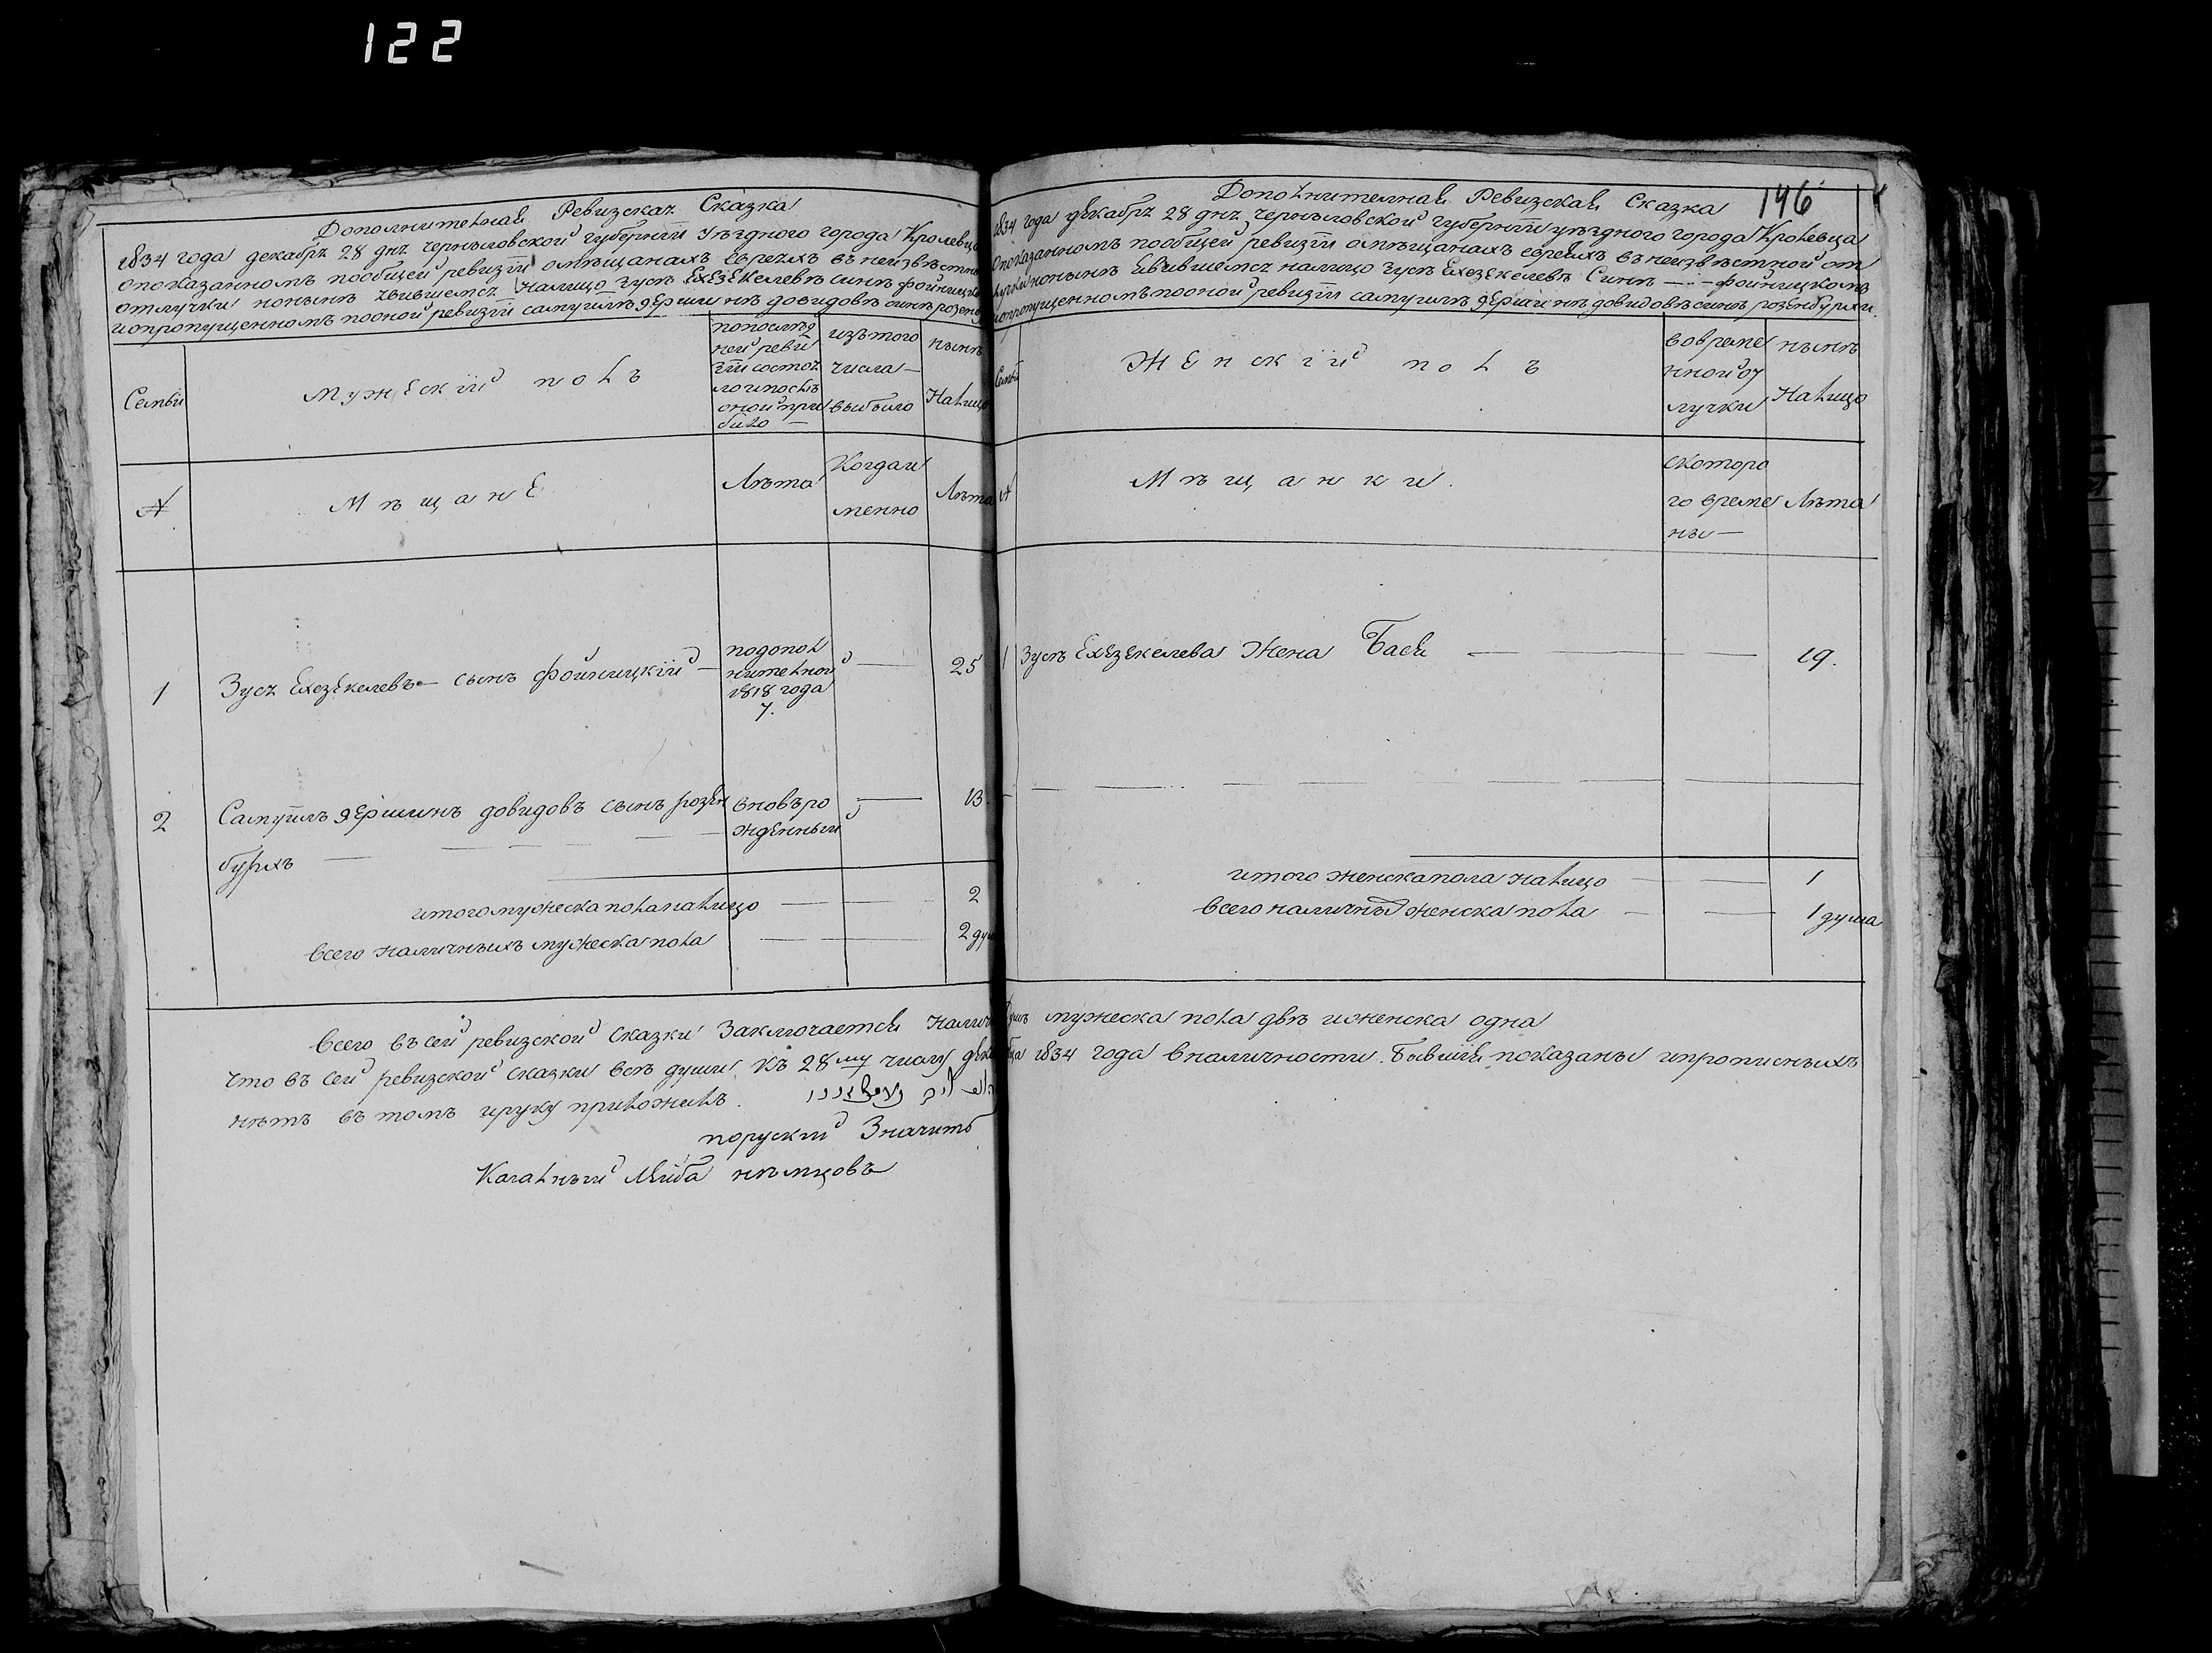 122
Дополнителная Ревизская Сказка
1834 года декабря 28 дня черниговской губернии уездного города Кролевца
опоказанномъ пообщей ревизiи омѣщанахъ евреяхъ въ неизвѣстной
отлучки нонынѣ явившемся налицо Зусѣ Ехезекелевѣ синѣ фойницком
ипропущенномъ пооной ревизiи самуилѣ гершинѣ довидовѣ синѣ розенбу
Семьи
Мужескiй полъ
попослѣд
ней реви
зiи состоя
ло ипослѣ
оной при
было —
изътого
числа —
выбыло
нынѣ
Налицо
№
Мѣщане
Лѣта
Когдаи
менно
Лѣта
1
Зуся Ехезекелевъ — сынъ фойницкiй —
подопол
нителной
1818 года
7.
25
2
Самуилъ гершинъ довидовъ сынъ розен
бурхъ
вновьро
жденный
13
итого мужеска пола налицо
2
всего наличныхъ мужеска пола
2 ду
146
Дополнителная Ревизская Сказка
1834 года декабря 28 дня черниговской губернiи уѣздного города Кролевца
опоказанномъ пообщей ревизiи омѣщанахъ евреяхъ в неизвѣстной от
лучки нонынѣ явившемся налицо Зусѣ Ехезекелевѣ Синѣ — фойницкомъ
ипропущенномъ пооной ревизiи самуилѣ гершинѣ довидовѣ синѣ розенбурхи.
Семьи
Женскiй полъ
вовреме
нной от
лучки
нынѣ
Налицо
№
Мѣщанки.
скоторо
го време
ны —
Лѣта
1
Зусѣ Ехезекелева Жена Бася
19.
итого женска пола налицо
1
всего наличны женска пола
1 душа
всего въсей ревизской сказки Заключается налич душъ мужеска пола двѣ иженска одна
что въ сей ревизской сказки всѣ души къ 28му числу декабря 1834 года вналичности бывшiя показаны ипрописныхъ
нѣтъ въ томъ ируку приложилъ.
поруский Значитъ
Кагалный Лейба нѣмцовъ